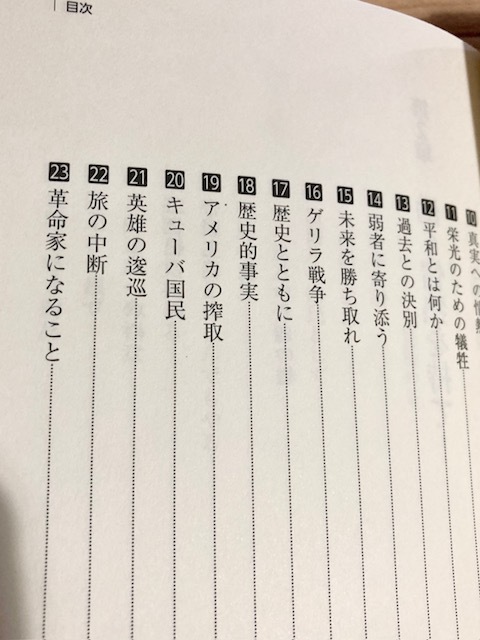 目次
10 真実への情熱
11 栄光のための犠牲
12 平和とは何か
13 過去との決別
14 弱者に寄り添う
15 未来を勝ち取れ
16 ゲリラ戦争
17 歴史とともに
18 歴史的事実
19 アメリカの搾取
20 キューバ国民
21 英雄の逡巡
22 旅の中断
23 革命家になること